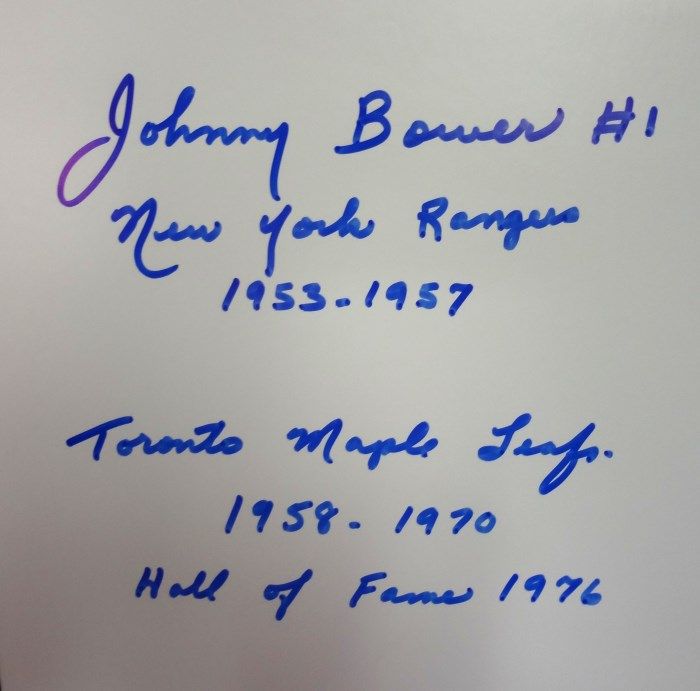 Johnny Bower #1
New York Rangers
1953-1957
Toronto Maple Leafs.
1958-1970
Hall of Fame 1976